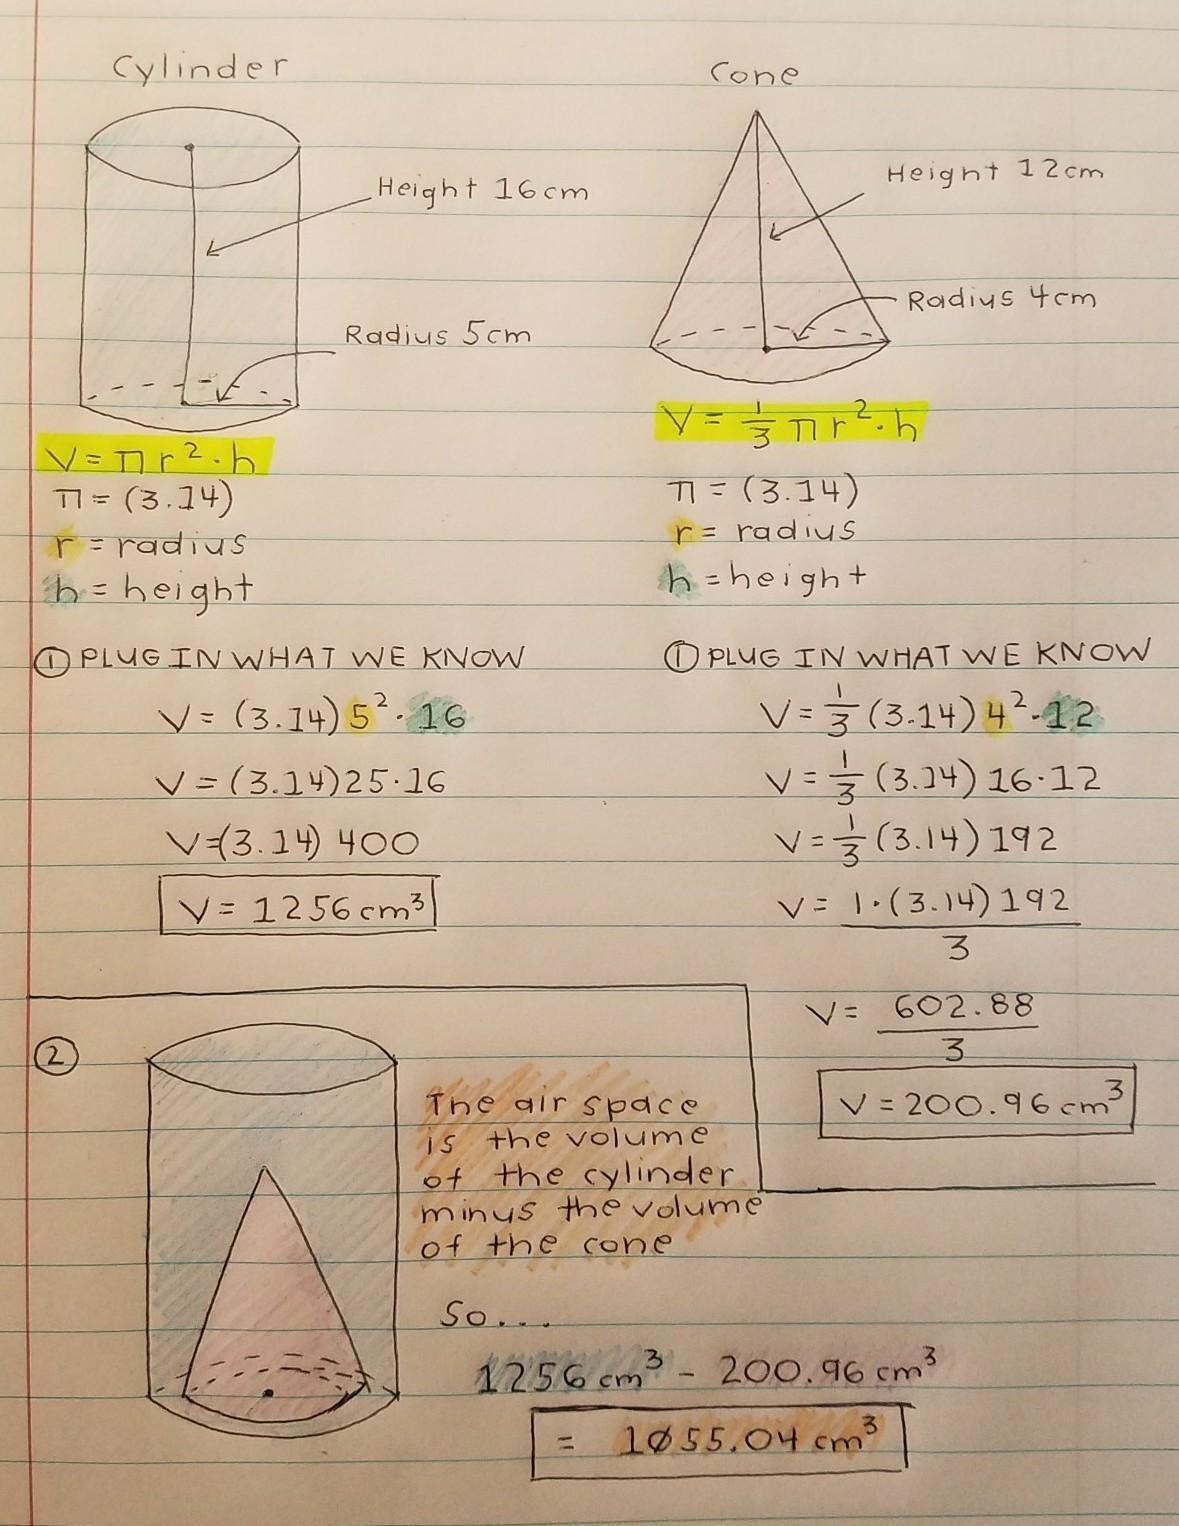 Cylinder
Height 16cm
Radius 5cm
V = π r² · h
π = (3.14)
r = radius
h = height
① PLUG IN WHAT WE KNOW
V = (3.14) 5² · 16
V = (3.14) 25 · 16
V = (3.14) 400
V = 1256 cm³
Cone
Height 12cm
Radius 4cm
V = 1/3 π r² · h
π = (3.14)
r = radius
h = height
① PLUG IN WHAT WE KNOW
V = 1/3 (3.14) 4² · 12
V = 1/3 (3.14) 16 · 12
V = 1/3 (3.14) 192
V = 1 · (3.14) 192
3
V = 602.88
3
V = 200.96 cm³
②
The air space
is the volume
of the cylinder
minus the volume
of the cone
So...
1256 cm³ - 200.96 cm³
= 1055.04 cm³